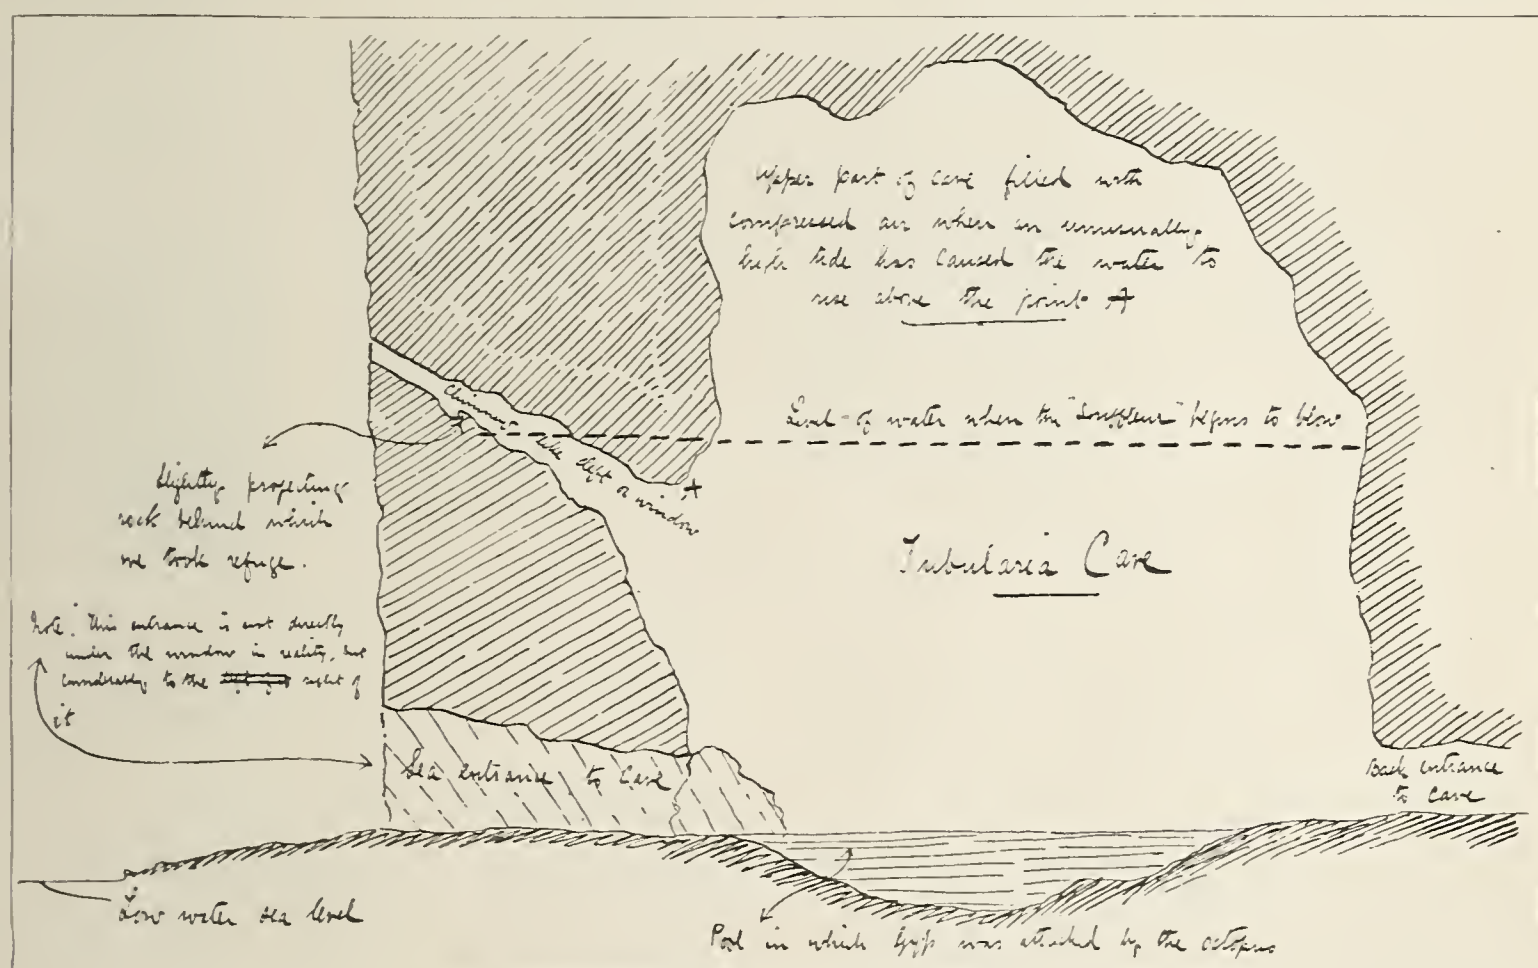 Upper part of cave filled with
compressed air when an unusually
high tide has caused the water to
rise above the point A
Chimney like cleft or window
A
Level of water when the "Souffleur" begins to blow
Slightly projecting
rock behind which
we took refuge.
Tubularia Cave
Note: This entrance is not directly
under the window in reality, but
considerably to the right of
it
Sea entrance to Cave
Back entrance
to Cave
Low water sea level
Pool in which Gyp was attacked by the octopus